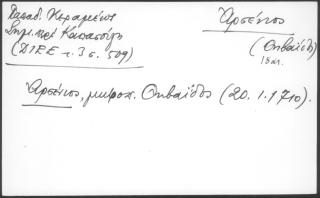 Παπαδ. Κεραμέως
Δημητρ. Καπασούλη
(ΔΙΕΕ τ. 3 σ. 509)
Ἀρσένιος
(Θηβαΐδος)
18 αι.
Ἀρσένιος, μητροπ. Θηβαΐδος (20.1.1710).